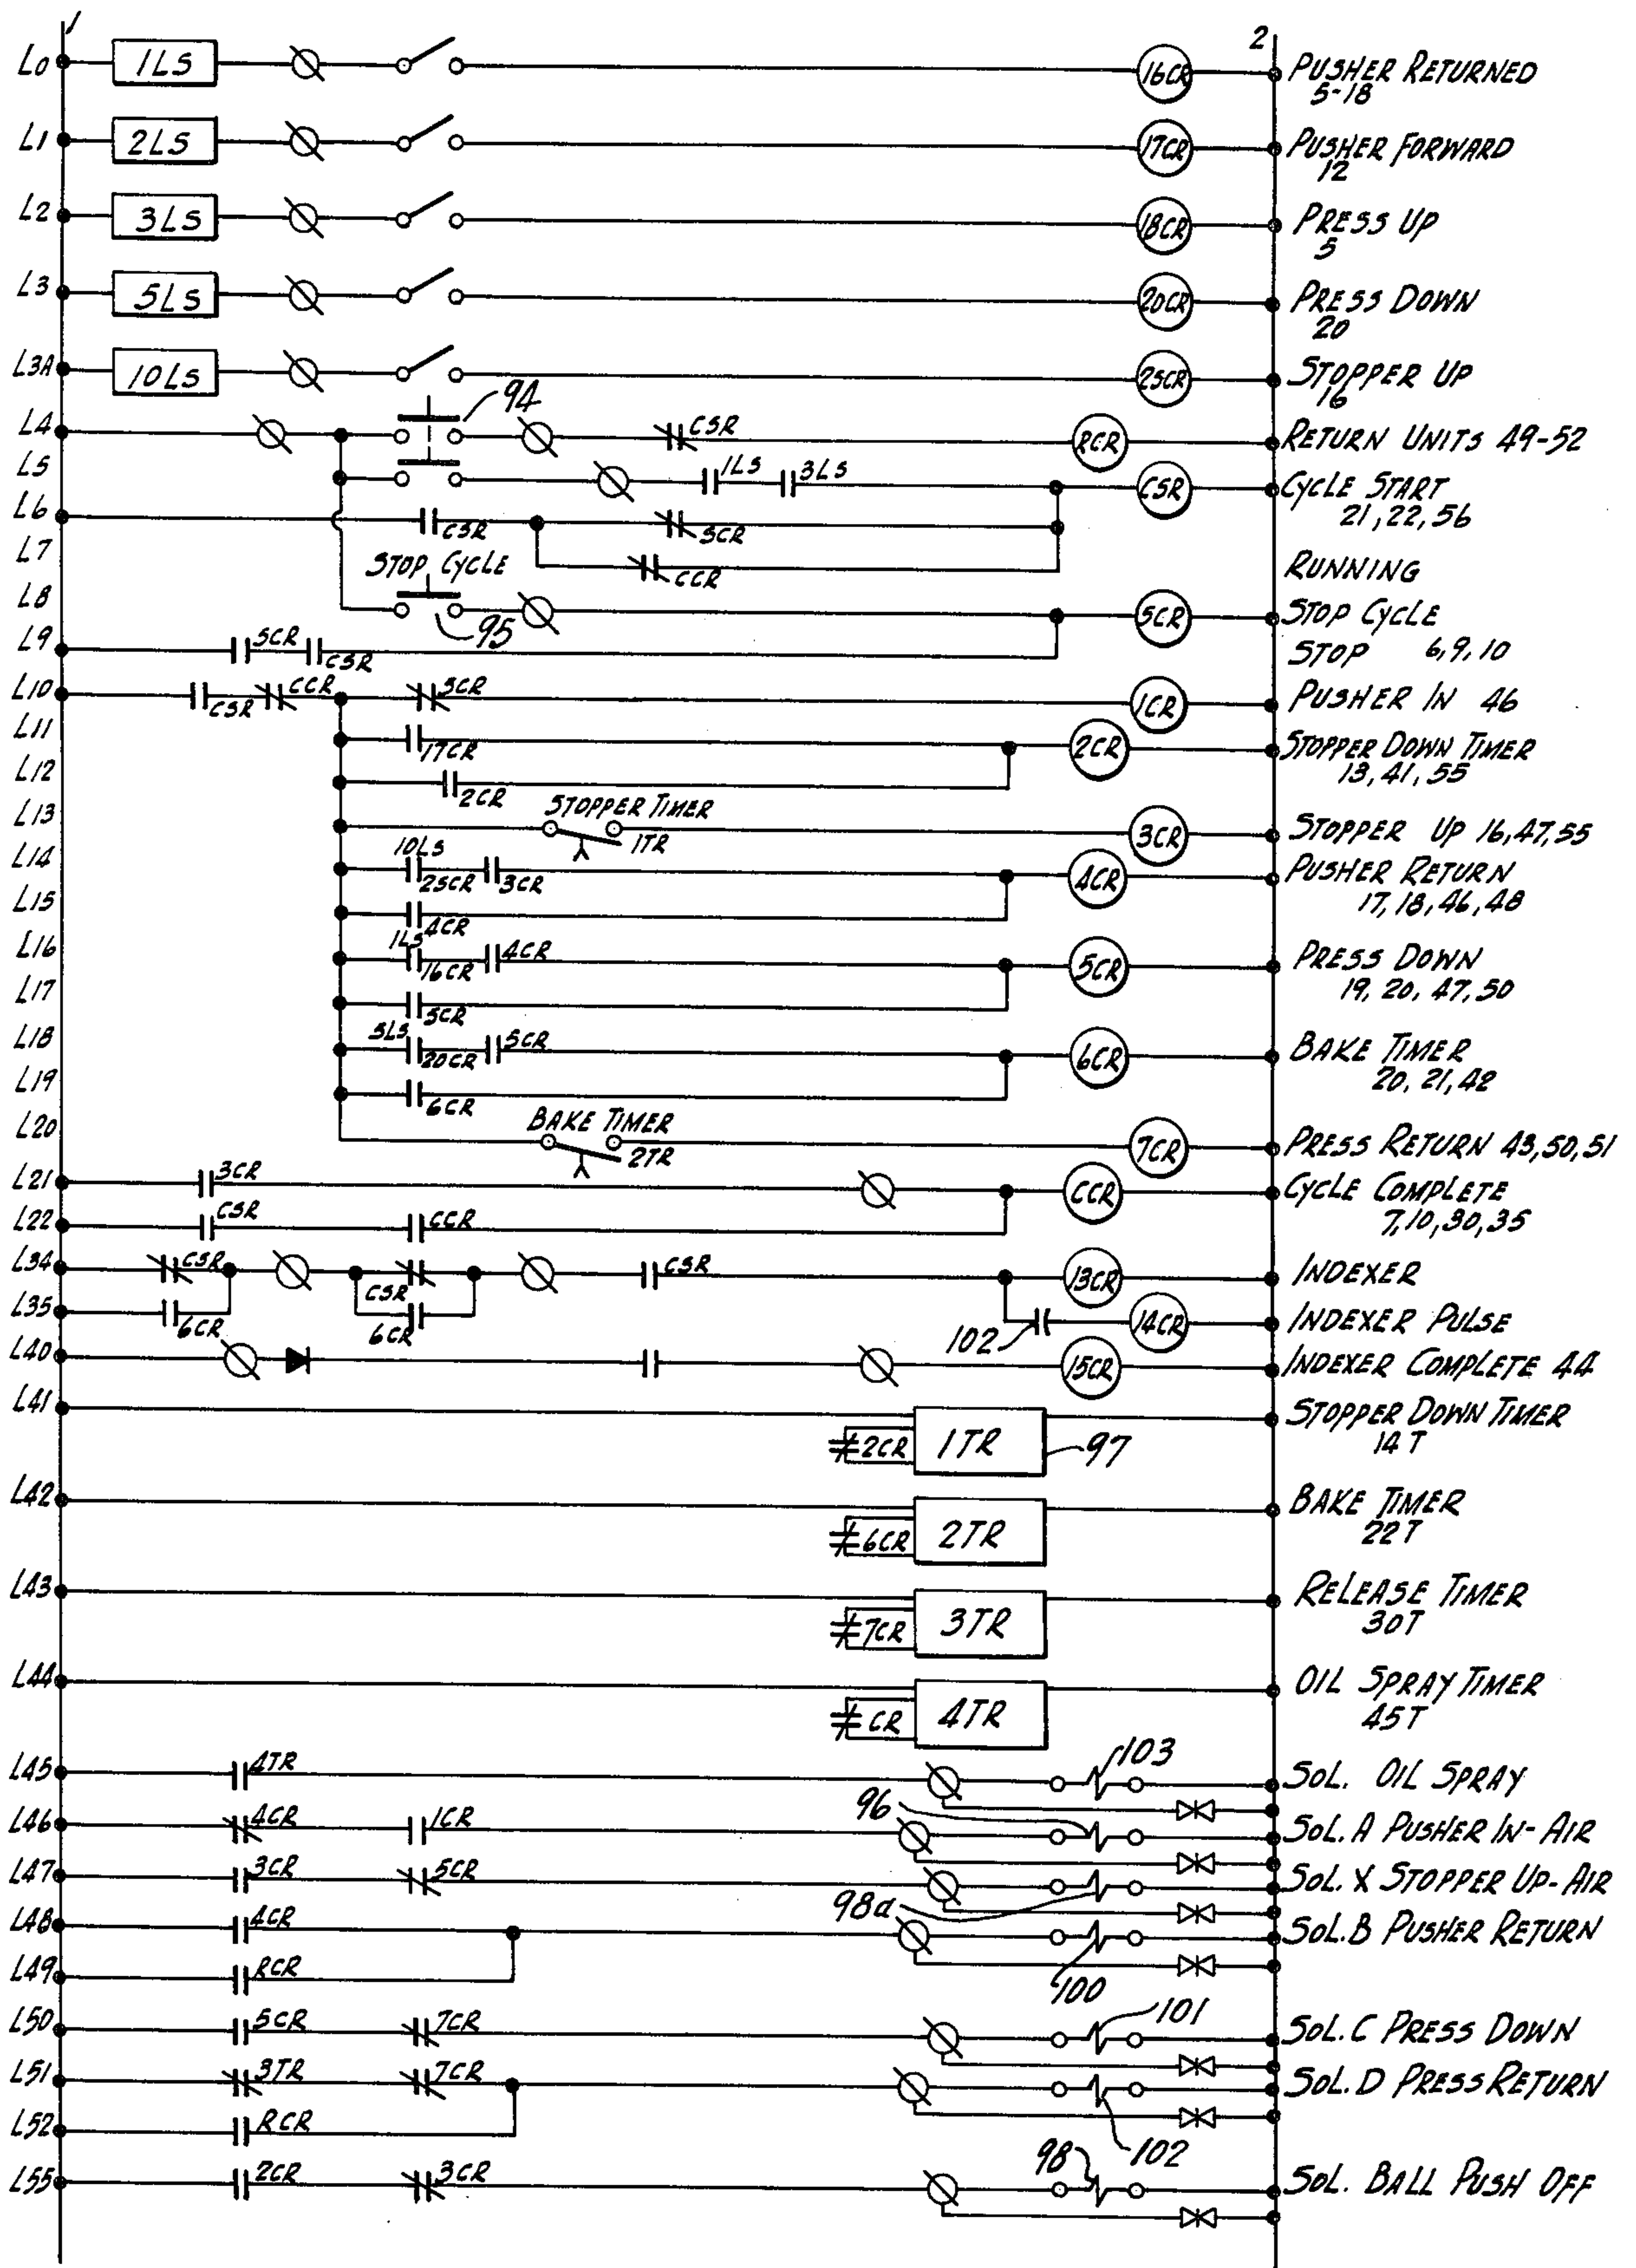 1 2
L0 1LS 16CR PUSHER RETURNED
5-18
L1 2LS 17CR PUSHER FORWARD
12
L2 3LS 18CR PRESS UP
5
L3 5LS 20CR PRESS DOWN
20
L3A 10LS 25CR STOPPER UP
16
94
L4 CSR RCR RETURN UNITS 49-52
L5 1LS 3LS CSR CYCLE START
21, 22, 56
L6 CSR SCR
L7 STOP CYCLE CCR RUNNING
L8 95 SCR STOP CYCLE
L9 SCR CSR STOP 6,9,10
L10 CSR CCR SCR 1CR PUSHER IN 46
L11 17CR 2CR STOPPER DOWN TIMER
13, 41, 55
L12 2CR
L13 STOPPER TIMER
1TR 3CR STOPPER UP 16,47,55
L14 10LS
25CR 3CR 4CR PUSHER RETURN
17, 18, 46, 48
L15 4CR
L16 1LS
16CR 4CR 5CR PRESS DOWN
19, 20, 47, 50
L17 5CR
L18 5LS
20CR 5CR 6CR BAKE TIMER
20, 21, 42
L19 6CR
L20 BAKE TIMER
2TR 7CR PRESS RETURN 43,50,51
L21 3CR CCR CYCLE COMPLETE
7,10,30,35
L22 CSR CCR
L34 CSR CSR CSR 13CR INDEXER
L35 6CR 6CR 102 14CR INDEXER PULSE
L40 15CR INDEXER COMPLETE 44
L41 2CR 1TR 97 STOPPER DOWN TIMER
14T
L42 6CR 2TR BAKE TIMER
22T
L43 7CR 3TR RELEASE TIMER
30T
L44 CR 4TR OIL SPRAY TIMER
45T
L45 4TR 103 SOL. OIL SPRAY
L46 4CR 1CR 96 SOL. A PUSHER IN-AIR
L47 3CR 5CR 98a SOL. X STOPPER UP-AIR
L48 4CR 100 SOL. B PUSHER RETURN
L49 RCR
L50 5CR 7CR 101 SOL. C PRESS DOWN
L51 3TR 7CR 102 SOL. D PRESS RETURN
L52 RCR
L55 2CR 3CR 98 SOL. BALL PUSH OFF